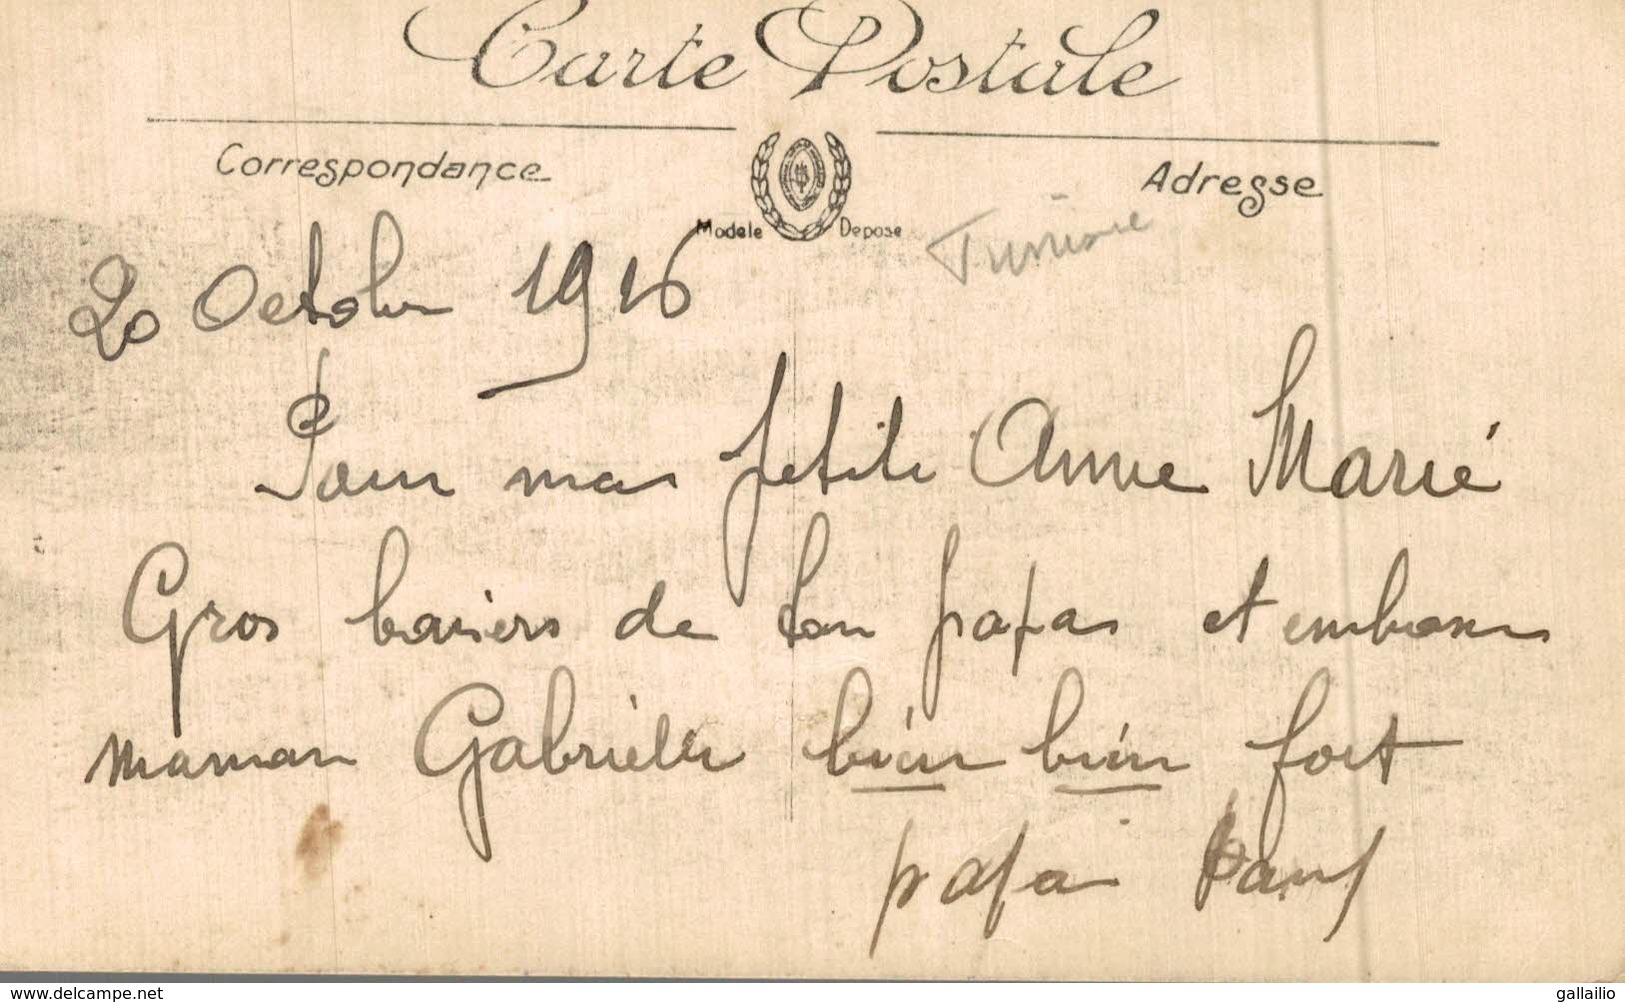 Carte Postale
Correspondance
Adresse
Modèle Déposé
Tunisie
20 Octobre 1916
Pour ma petite Anne Marie
Gros baisers de ton papa et embrasse
maman Gabrielle bien bien fort
papa Paul
www.delcampe.net
gallailio